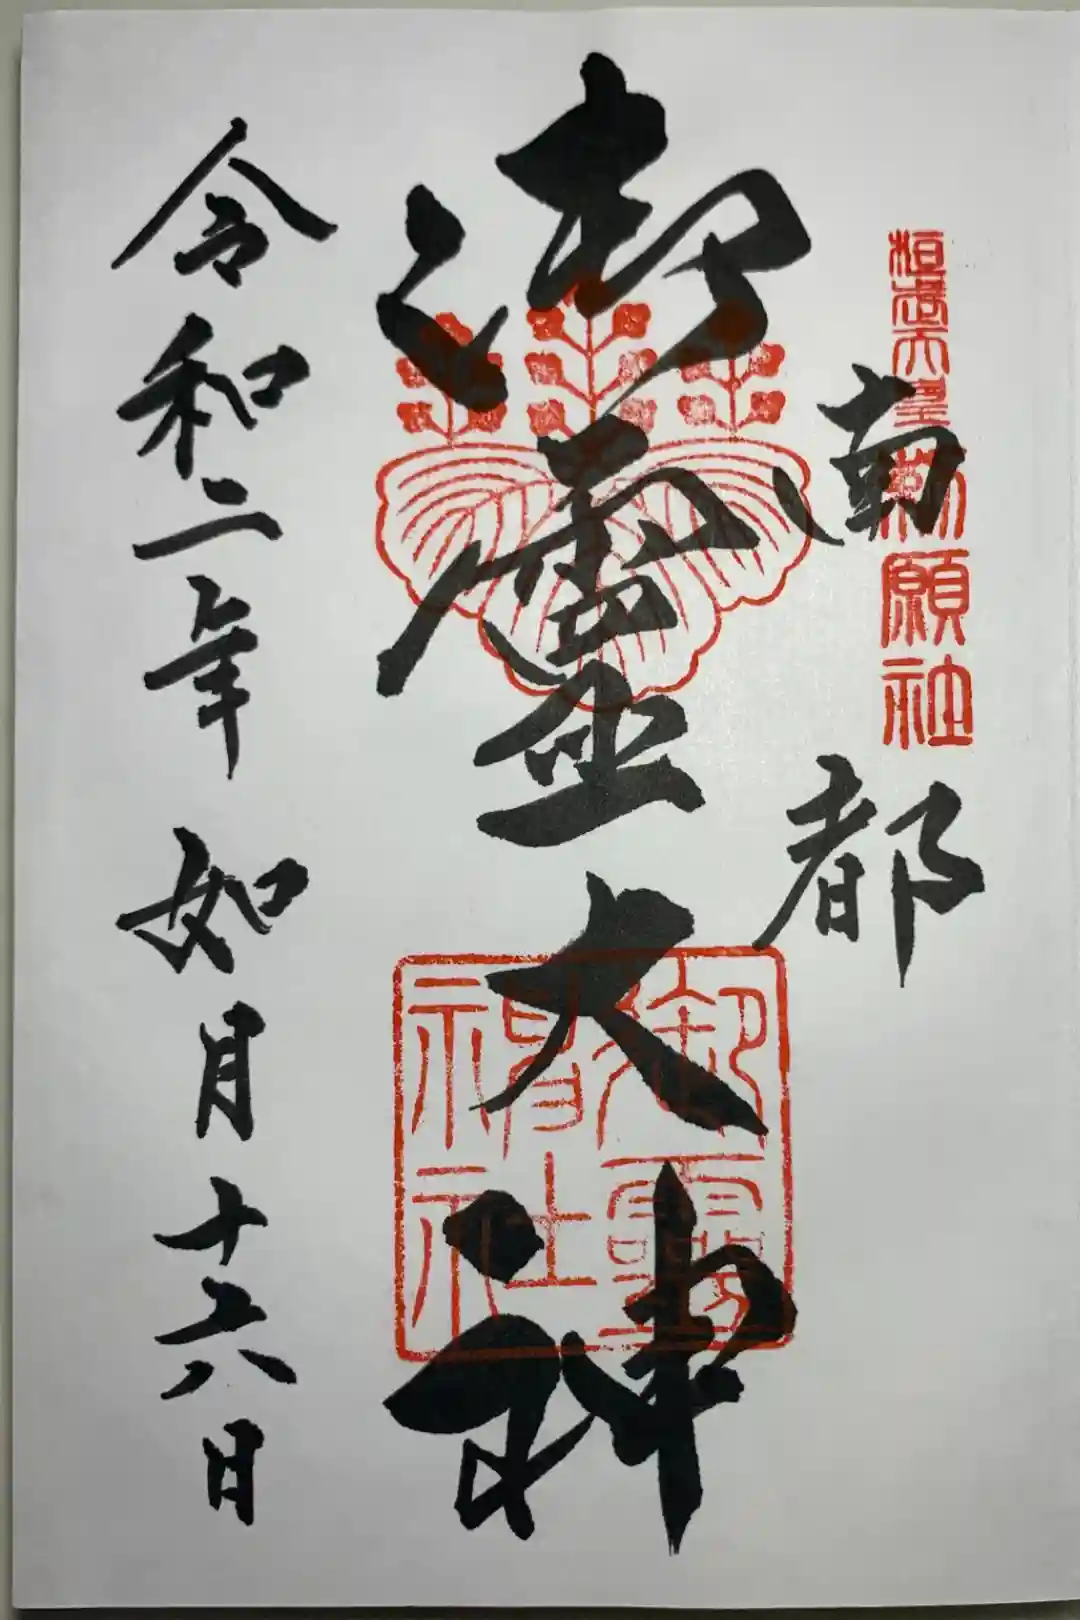 桓武天皇勅願社
南都
御霊大神
御霊神社
令和二年如月十六日